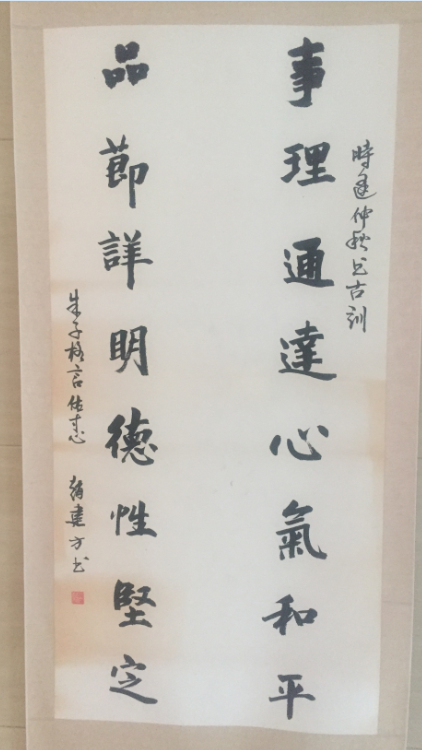 時逢仲秋書古訓
事理通達心氣和平
品節詳明德性堅定
朱子格言佐 
建方書